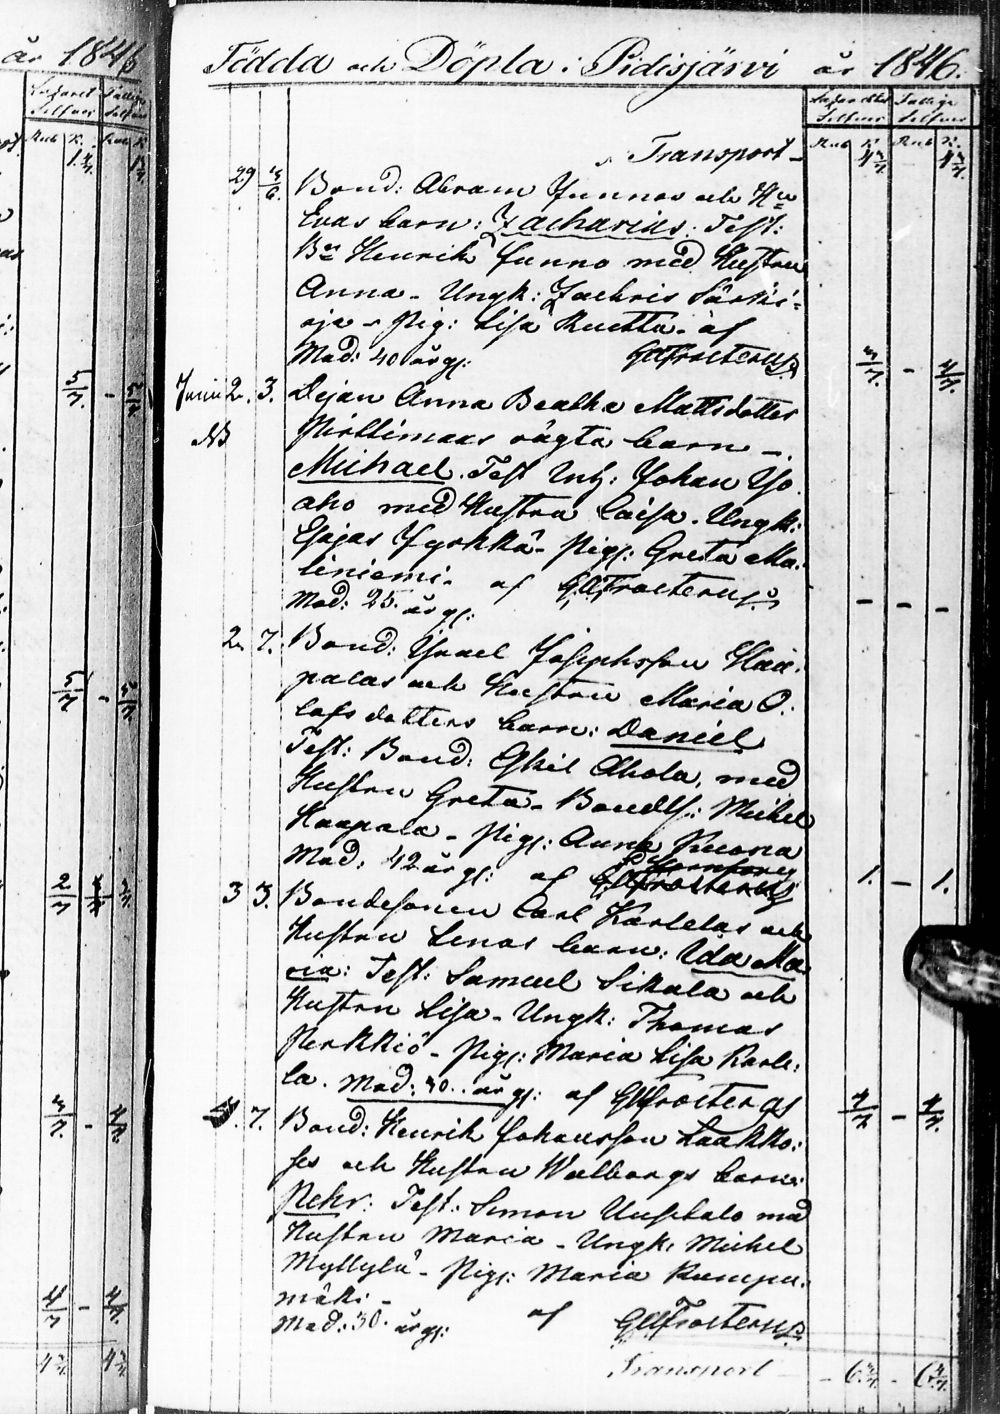 år 1846
Födda och Döpta i Pidisjärvi år 1846.
Transport
29 3/6. Bond: Abram Junnos och Hu
Evas barn: Zacharius. Test:
Bn Henrik Junno med Hustru
Anna - Ungk: Zachris Särki-
oja - Pig: Lisa Ruetta. af
Mod: 40 årg: GAFrosterus
Juni 2. 3. Dejan Anna Beatha Mattsdotter
NB Pirttimaas oägta barn -
Michael. Test Inh: Johan Yo
aho med Hustru Caisa. Ungk:
Esajas Jyrkkä - Pig: Greta Ma-
liniemi. af GAFrosterus
Mod: 25. årg:
2. 7. Bond: Israel Josephsson Haa-
palas och Hustrun Maria O-
lofsdotters barn: Daniel
Test: Bond: Eskil Ahola, med
Hustru Greta - Bonds: Michel
Haapala - Pig: Anna
Mod: 42 årg: af 1. - 1.
3 3. Bondesonen Carl Karlelas och
Hustru Lenas barn: Ida Ma
ria: Test: Samuel Sikala och
Hustru Lisa - Ungk: Thomas
Perkkiö - Pig: Maria Lisa Karle-
la. Mod: 30. årg: af GAFrosterus
4. 7. Bond: Henrik Johansson Laakko-
ses och Hustru Walborgs barn:
Pehr: Test: Simon Uusitalo med
Hustru Maria - Ungk: Michel
Myllylä - Pig: Maria Rumpu-
mäki -
Mod: 30. årg: af GAFrosterus
Transport